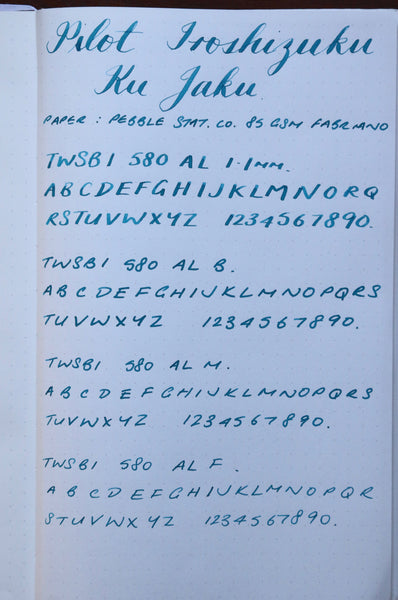 Pilot Iroshizuku
Ku Jaku
PAPER : PEBBLE STAT. CO. 85 GSM FABRIANO
TWSBI 580 AL 1.1mm.
ABCDEFGHIJKLMNOPQ
RSTUVWXYZ 1234567890.
TWSBI 580 AL B.
ABCDEFGHIJKLMNOPQRS
TUVWXYZ 1234567890.
TWSBI 580 AL M.
ABCDEFGHIJKLMNOPQRS
TUVWXYZ 1234567890.
TWSBI 580 AL F.
ABCDEFGHIJKLMNOPQR
STUVWXYZ 1234567890.